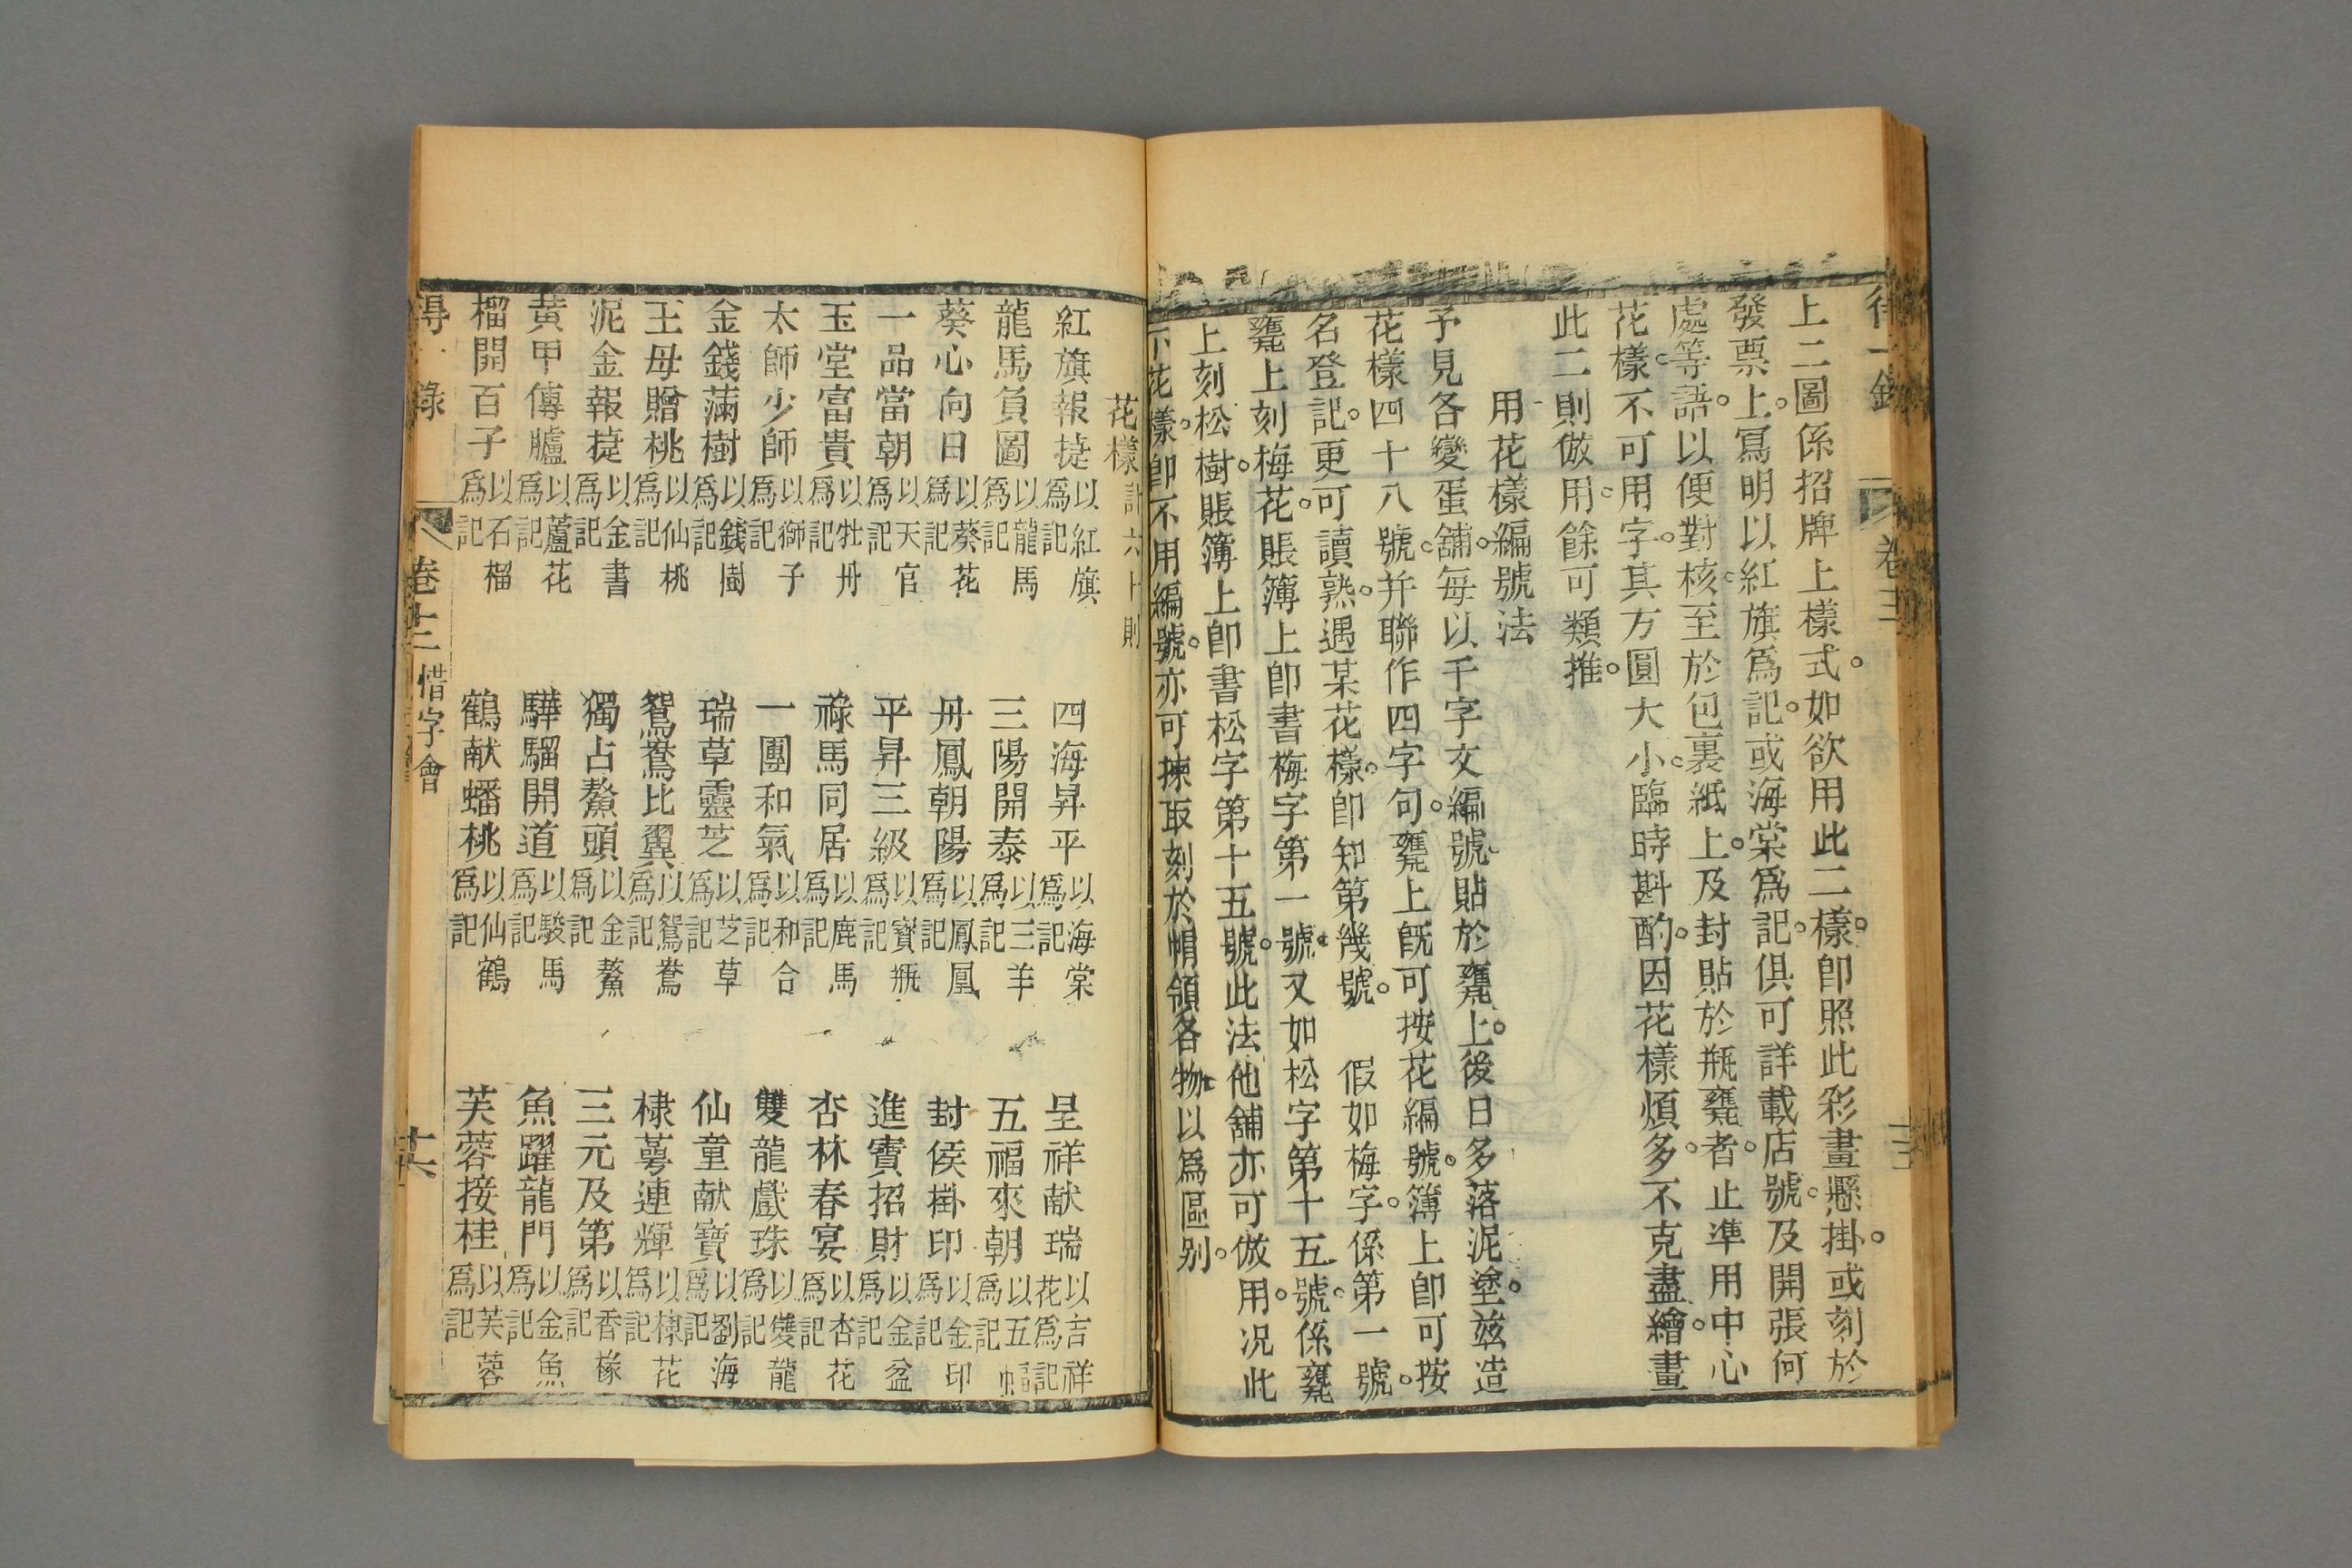 上二圖係招牌上樣式。如欲用此二樣。卽照此彩畫懸掛。或刻於
發票上。寫明以紅旗爲記。或海棠爲記。俱可詳載店號。及開張何
處等語。以便對核。至於包裏紙上。及封貼於瓶甕者。止準用中心
花樣。不可用字。其方圓大小。臨時斟酌。因花樣煩多。不克盡繪。畫
此二則倣用。餘可類推。
用花樣編號法
予見各變蛋舖。每以千字文編號。貼於甕上。後日多落泥塗。茲造
花樣四十八號。并聯作四字句。甕上旣可按花編號。簿上卽可按
名登記。更可讀熟。遇某花樣。卽知第幾號。 假如梅字。係第一號。
甕上刻梅花。賬簿上卽書梅字第一號。又如松字第十五號。係甕
上刻松樹。賬簿上卽書松字第十五號。此法他舖亦可倣用。况此
下花樣。卽不用編號。亦可揀取刻於帽領各物。以爲區別。
卷三
花樣計六十則
紅旗報捷以紅旗爲記 四海昇平以海棠爲記 呈祥献瑞以吉祥花爲記
龍馬負圖以龍馬爲記 三陽開泰以三羊爲記 五福來朝以五幅爲記
葵心向日以葵花爲記 丹鳳朝陽以鳳凰爲記 封侯掛印以金印爲記
一品當朝以天官爲記 平昇三級以寳瓶爲記 進寳招財以金盆爲記
玉堂富貴以牡丹爲記 祿馬同居以鹿馬爲記 杏林春宴以杏花爲記
太師少師以獅子爲記 一團和氣以和合爲記 雙龍戲珠以雙龍爲記
金錢滿樹以錢樹爲記 瑞草靈芝以芝草爲記 仙童献寶以劉海爲記
王母贈桃以仙桃爲記 鴛鴦比翼以鴛鴦爲記 棣蕚連輝以棣花爲記
泥金報捷以金書爲記 獨占鰲頭以金鰲爲記 三元及第以香櫞爲記
黃甲傳臚以蘆花爲記 驊騮開道以駿馬爲記 魚躍龍門以金魚爲記
榴開百子以石榴爲記 鶴献蟠桃以仙鶴爲記 芙蓉接桂以芙蓉爲記
得一錄 卷十二 惜字會 十六